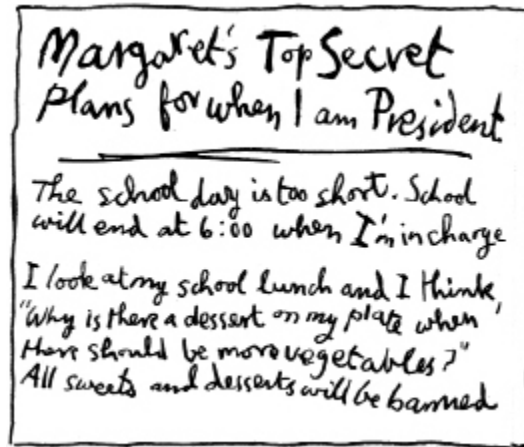 Margaret's Top Secret
Plans for when I am President
The school day is too short. School
will end at 6:00 when I'm in charge
I look at my school lunch and I think,
"Why is there a dessert on my plate when
there should be more vegetables?"
All sweets and desserts will be banned